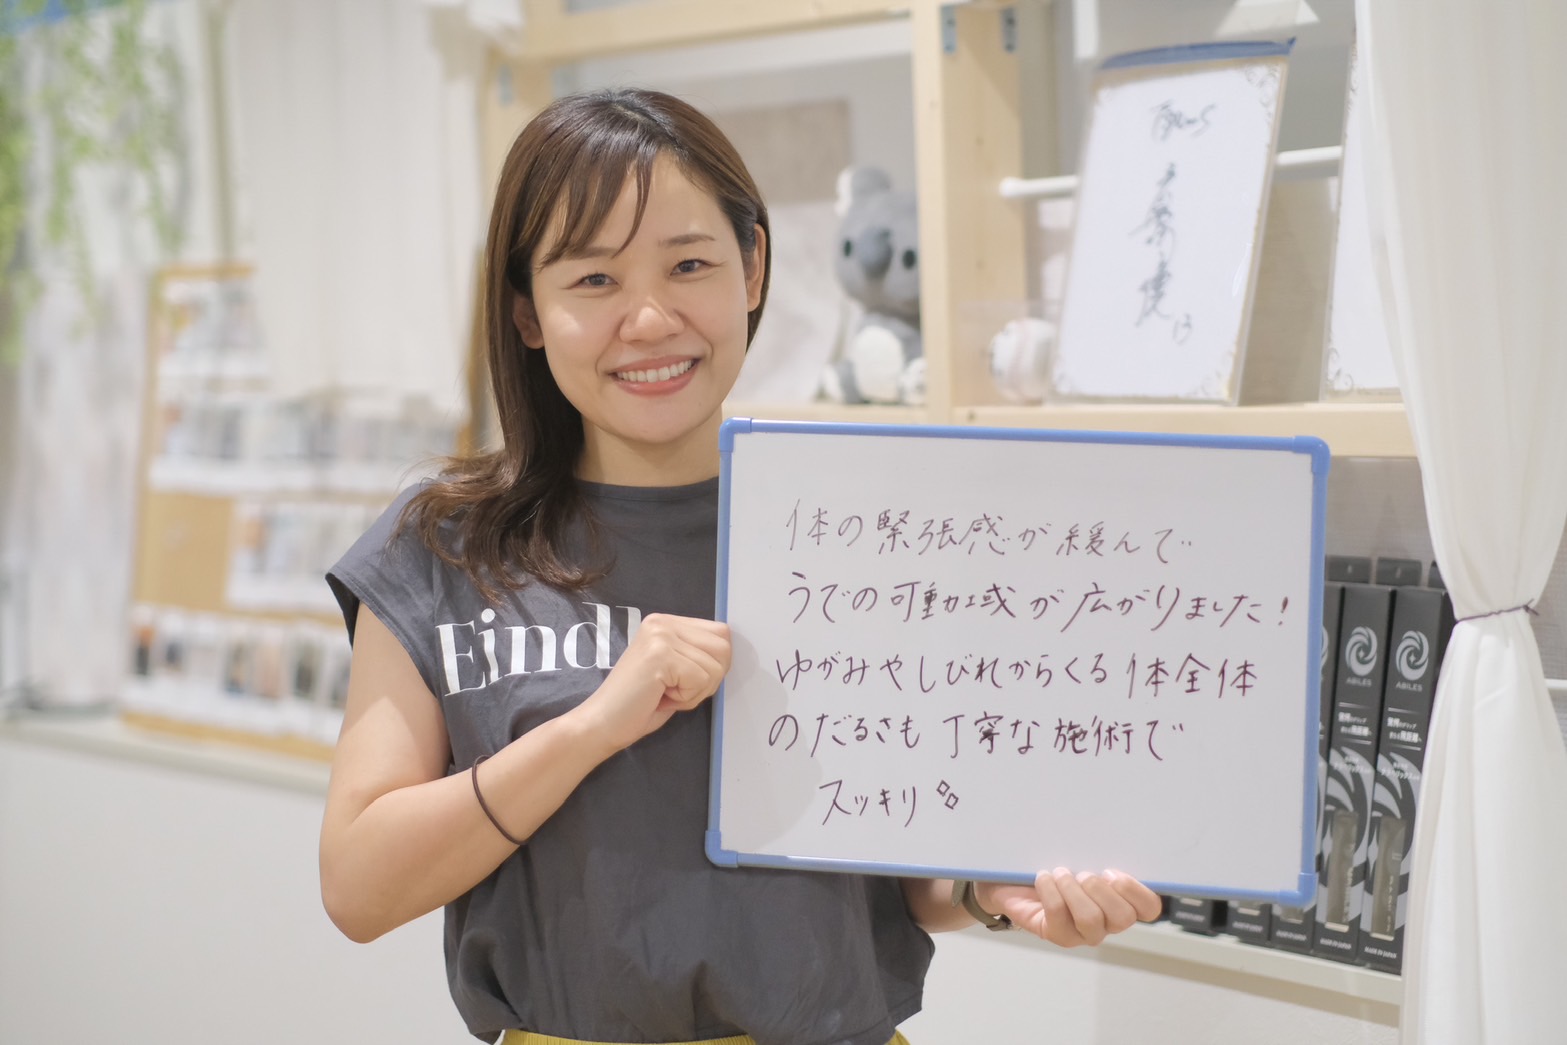 体の緊張感が緩んで
うでの可動域が広がりました!
ゆがみやしびれからくる体全体
のだるさも丁寧な施術で
スッキリ
Eindl
13
ABILES
ABILES
MADE IN JAPAN
MADE IN JAPAN